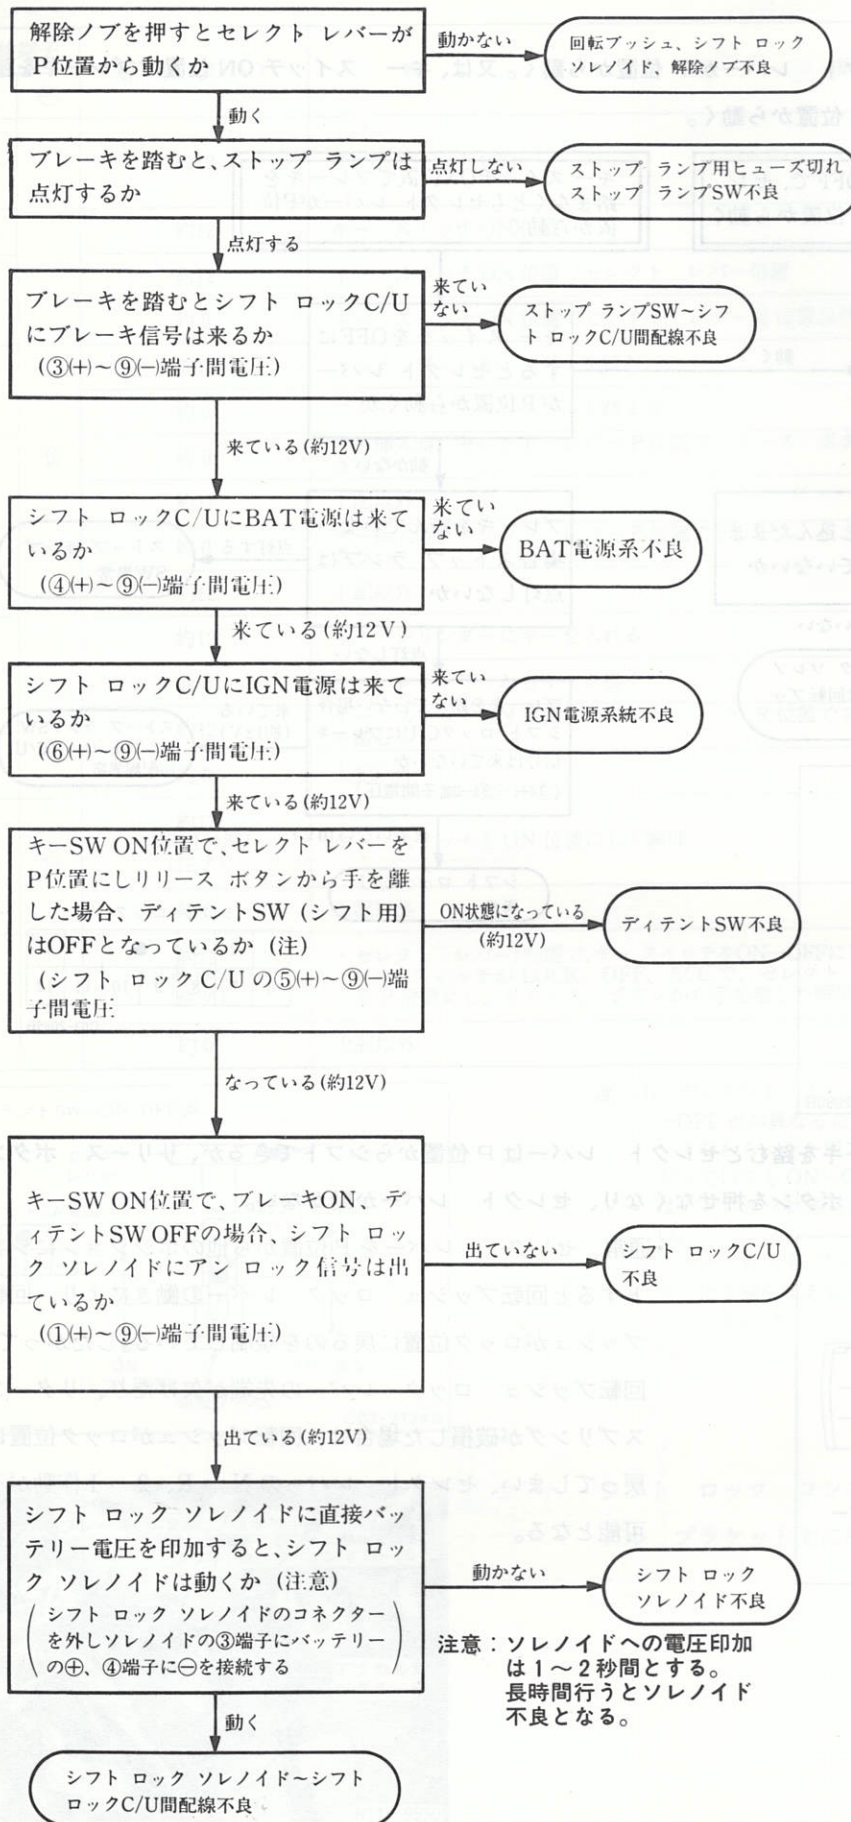 解除ノブを押すとセレクト レバーが
P位置から動くか
動かない
回転ブッシュ、シフト ロック
ソレノイド、解除ノブ不良
動く
ブレーキを踏むと、ストップ ランプは
点灯するか
点灯しない
ストップ ランプ用ヒューズ切れ
ストップ ランプSW不良
点灯する
ブレーキを踏むとシフト ロックC/U
にブレーキ信号は来るか
(③(+)～⑨(−)端子間電圧)
来てい
ない
ストップ ランプSW～シフ
ト ロックC/U間配線不良
来ている(約12V)
シフト ロックC/UにBAT電源は来て
いるか
(④(+)～⑨(−)端子間電圧)
来てい
ない
BAT電源系不良
来ている(約12V)
シフト ロックC/UにIGN電源は来て
いるか
(⑥(+)～⑨(−)端子間電圧)
来てい
ない
IGN電源系統不良
来ている(約12V)
キーSW ON位置で、セレクト レバーを
P位置にしリリース ボタンから手を離
した場合、ディテントSW (シフト用)
はOFFとなっているか (注)
(シフト ロックC/Uの⑤(+)～⑨(−)端
子間電圧
ON状態になっている
(約12V)
ディテントSW不良
なっている(約12V)
キーSW ON位置で、ブレーキON、デ
ィテントSW OFFの場合、シフト ロッ
ク ソレノイドにアン ロック信号は出
ているか
(①(+)～⑨(−)端子間電圧)
出ていない
シフト ロックC/U
不良
出ている(約12V)
シフト ロック ソレノイドに直接バッ
テリー電圧を印加すると、シフト ロッ
ク ソレノイドは動くか (注意)
シフト ロック ソレノイドのコネクター
を外しソレノイドの③端子にバッテリー
の⊕、④端子に⊖を接続する
動かない
シフト ロック
ソレノイド不良
注意：ソレノイドへの電圧印加
は1～2秒間とする。
長時間行うとソレノイド
不良となる。
動く
シフト ロック ソレノイド～シフト
ロックC/U間配線不良